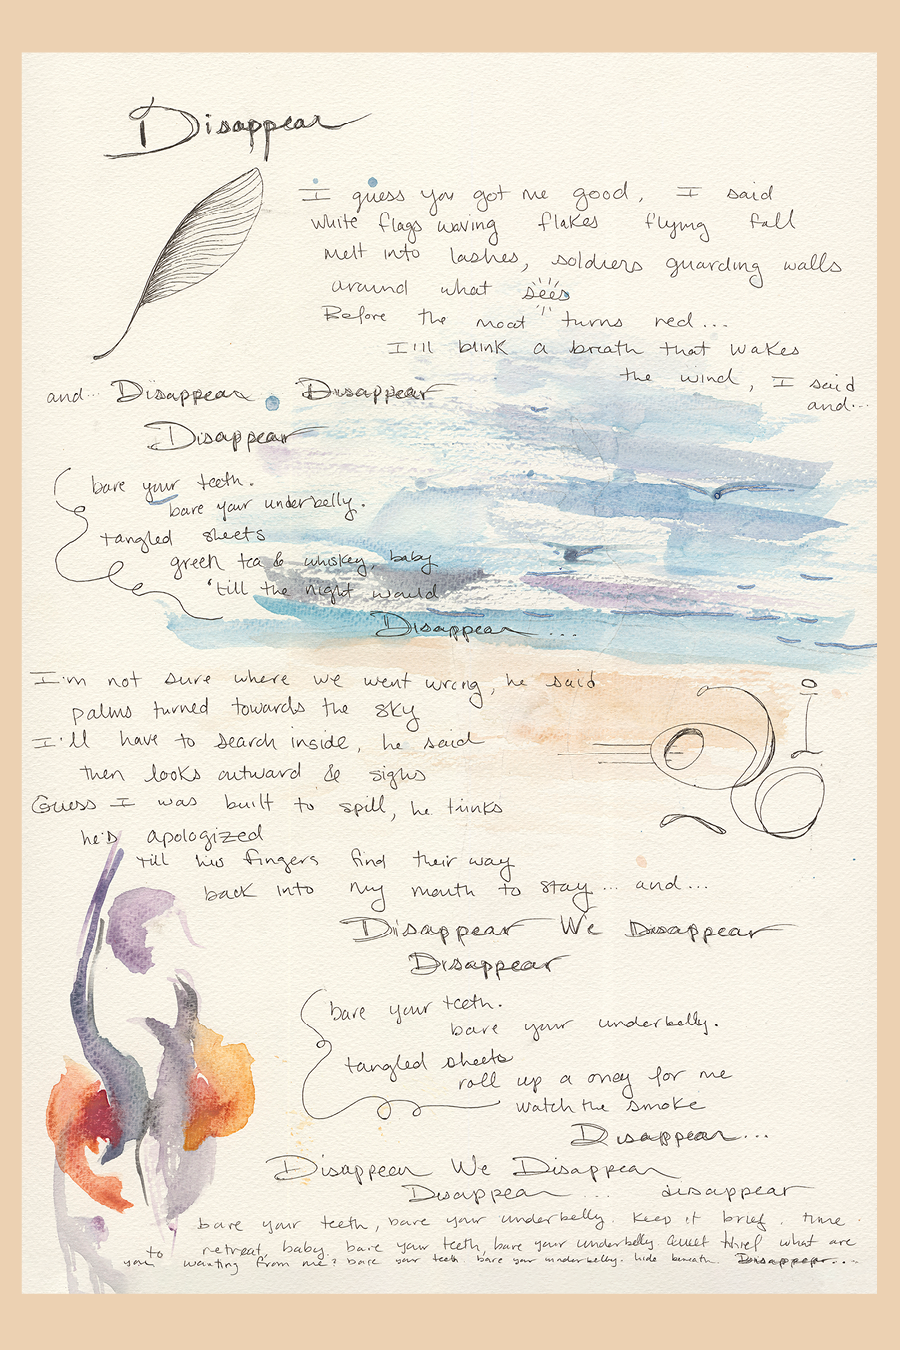 Disappear
I guess you got me good, I said
white flags waving flakes flying fall
melt into lashes, soldiers guarding walls
around what sees
Before the moat turns red...
I'll blink a breath that wakes
the wind, I said
and...
and... Disappear Disappear
Disappear
bare your teeth.
bare your underbelly.
tangled sheets
green tea & whiskey, baby
'till the night would
Disappear...
I'm not sure where we went wrong, he said
palms turned towards the sky
I'll have to search inside, he said
then looks outward & sighs
Guess I was built to spill, he thinks
he's apologized
till his fingers find their way
back into my mouth to stay... and...
Disappear We Disappear
Disappear
bare your teeth.
bare your underbelly.
tangled sheets
roll up a oney for me
watch the smoke
Disappear...
Disappear We Disappear
Disappear... disappear
bare your teeth, bare your underbelly. keep it brief. time
to retreat, baby. bare your teeth, bare your underbelly quiet thief what are
you wanting from me? bare your teeth bare your underbelly. hide beneath. Disappear...